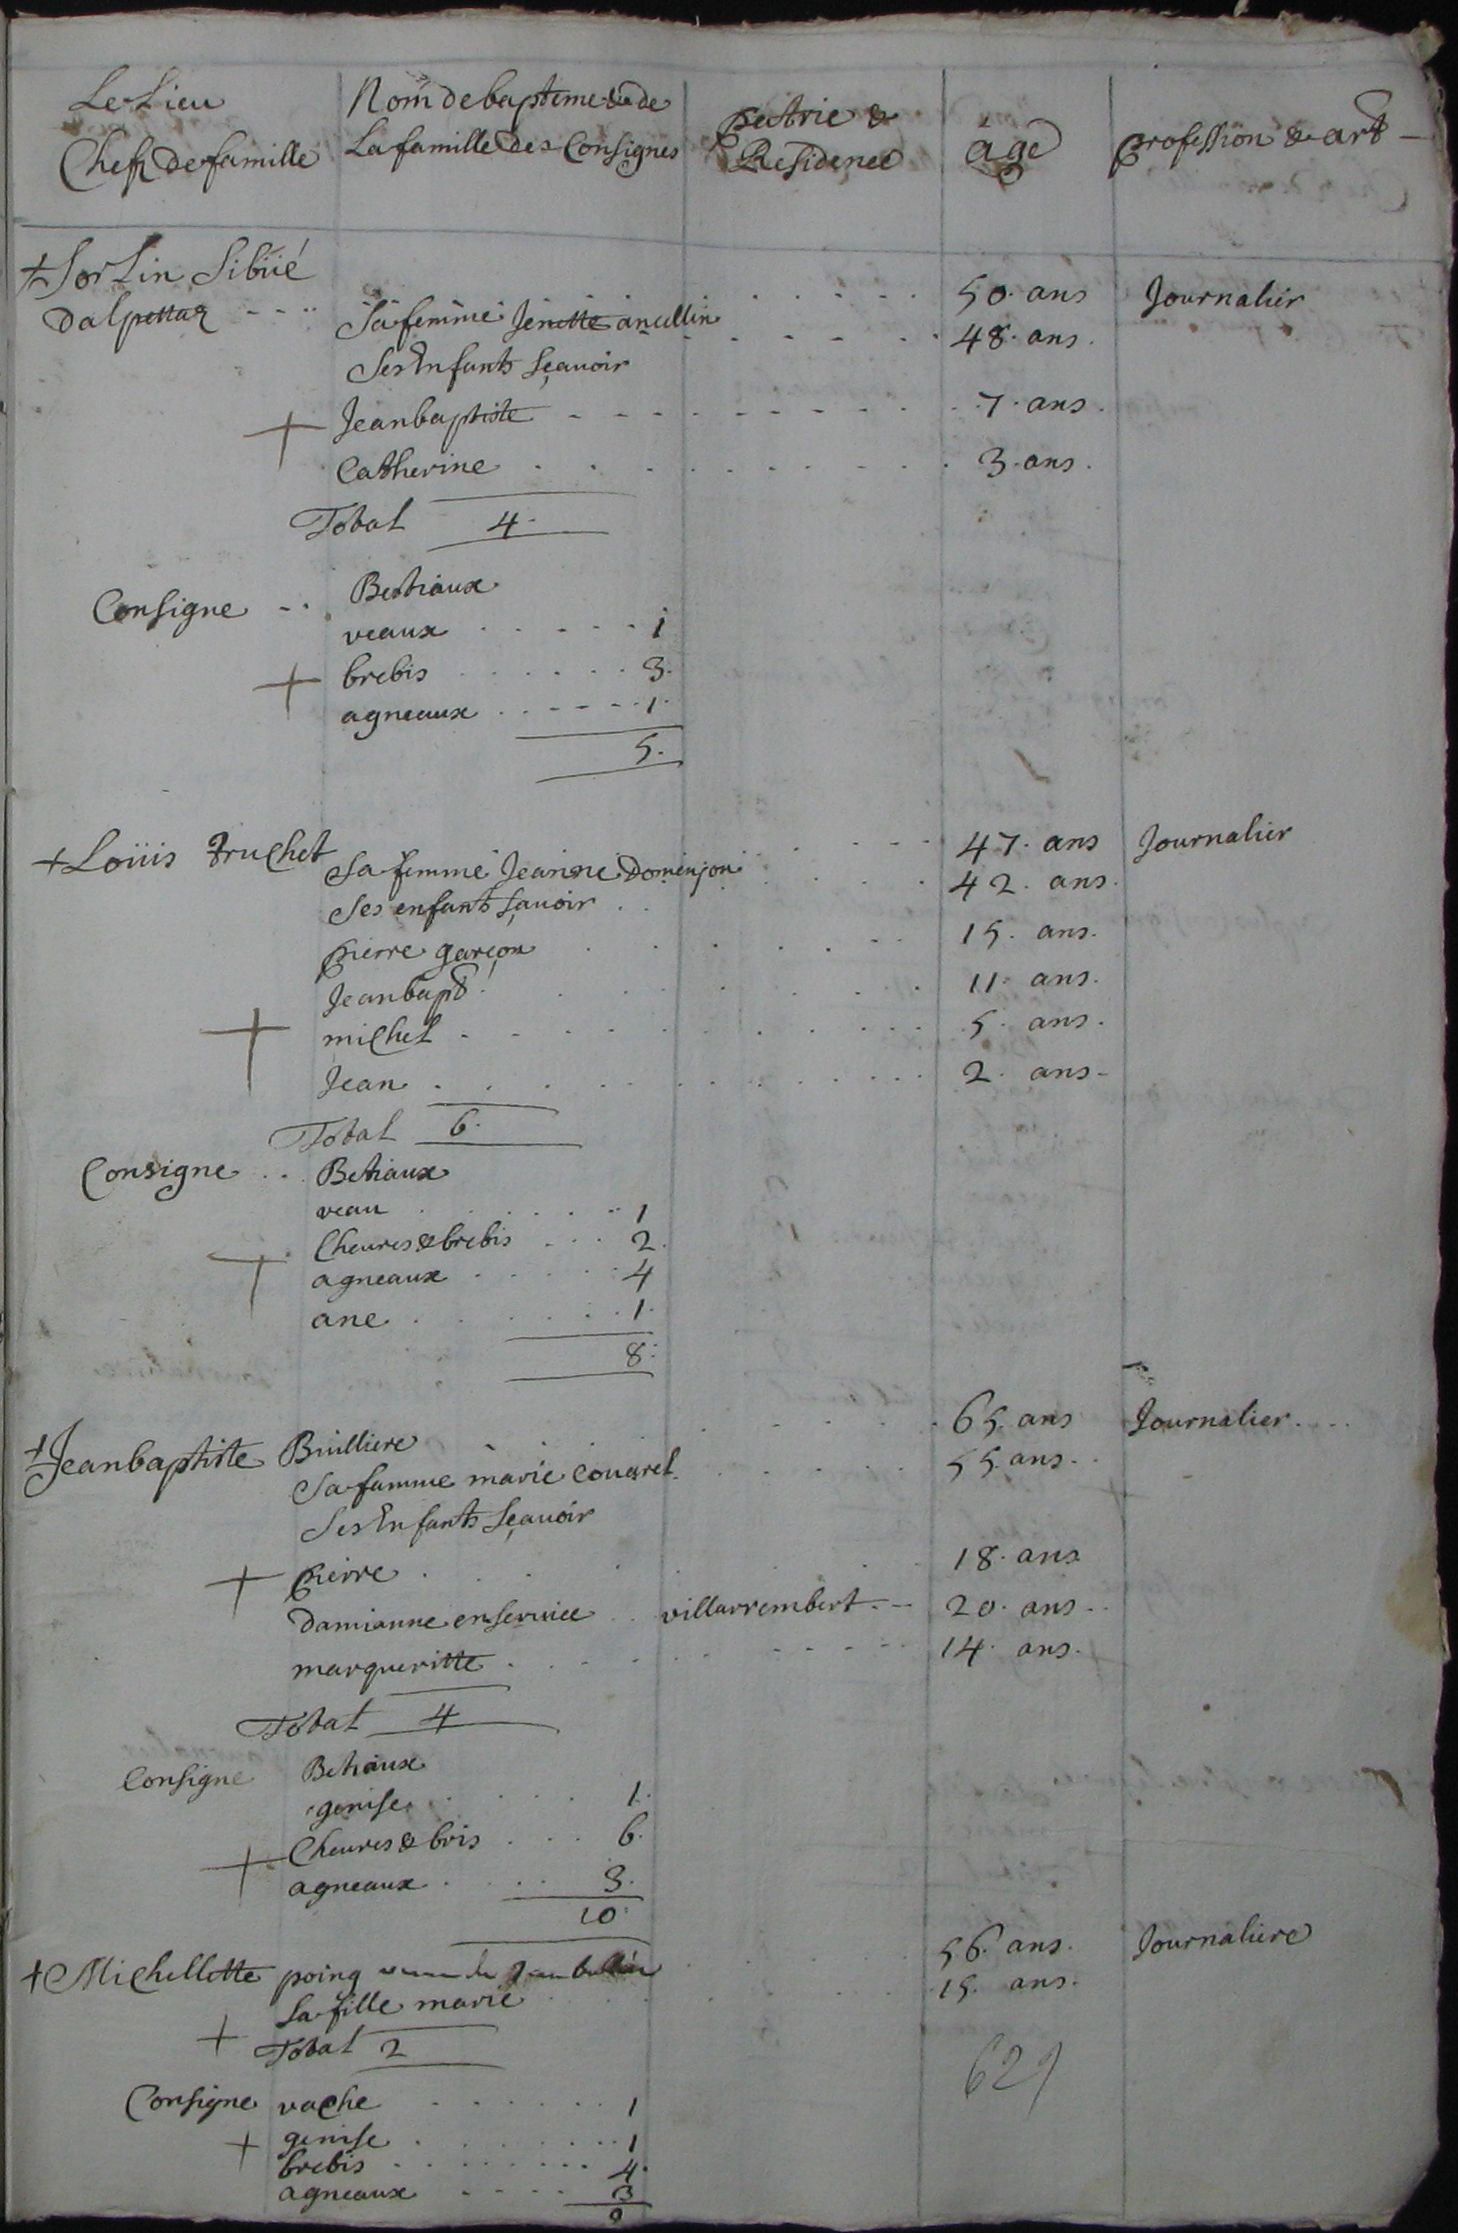 Le Lieu
Chefs De famille
Nom de bapteme & de
La famille Des Consignes
patrie &
Residence
age
profession & art
+ Sorlin Sibüé 50. ans Journalier
Dalpettaz
Sa femme Jenette ancellin 48. ans.
Ses Enfants sçauoir
+ Jeanbaptiste 7. ans.
Catherine 3. ans.
Total 4.
Consigne Bestiaux
veaux 1
+ brebis 3.
agneaux 1.
5.
+ Loüis Truchet 47. ans Journalier
Sa femme Jeanne Domenjon 42. ans.
Ses enfants sçauoir
pierre garçon 15. ans.
Jeanbapt 11. ans.
+ michel 5. ans.
Jean 2. ans
Total 6.
Consigne Betiaux
veau 1
Cheures & brebis 2.
+ agneaux 4
ane 1.
8.
+ Jeanbaptiste Brülliere 65 ans Journalier
Sa famme marie Couarel 55 ans.
Ses Enfants sçauoir
+ pierre 18. ans
Damianne en seruice villarrembert 20. ans
margueritte 14. ans.
Total 4
Consigne Betiaux
genise 1.
Cheures & bris 6.
+ agneaux 3.
10.
+ Michellette poing 56. ans. Journaliere
Sa fille marie 15. ans.
+ Total 2
Consigne vache 1
+ genise 1
brebis 4.
agneaux 3
9
629